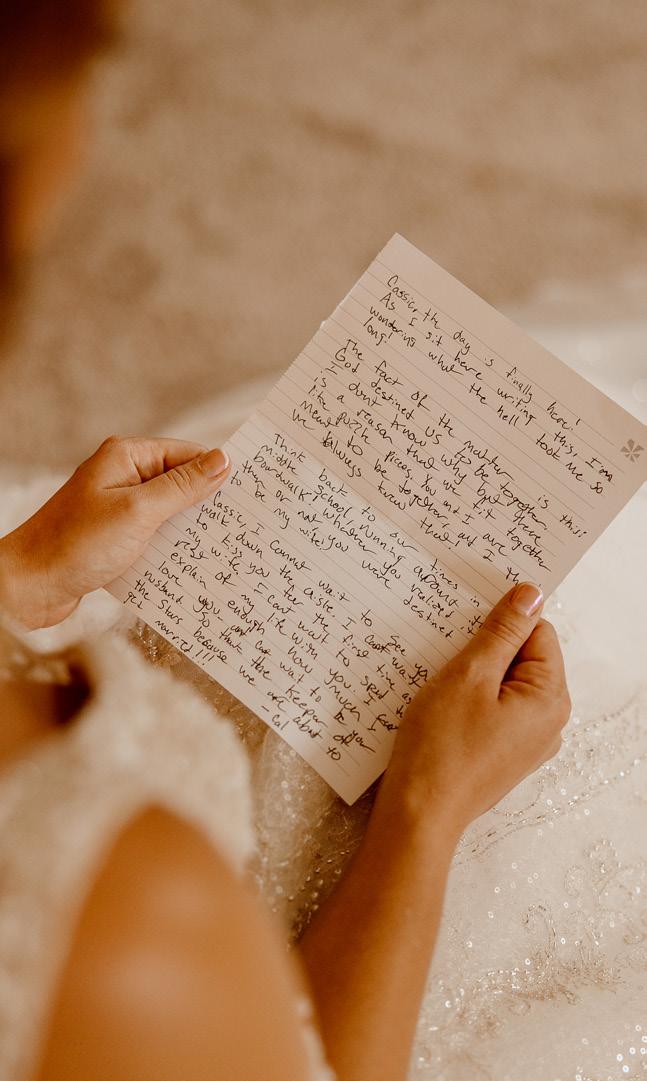 Cassie, the day is finally here!
As I sit here writing this, I am
wondering what the hell took me so
long!
The fact of the matter is this:
God destined us to be together.
I dont know why but there
is a reason that we fit together
like puzzle pieces. You and I are
meant to be together, and I th
we always knew that!
Think back to our times in
middle school, running around t
boardwalk, whatever you realized it
then or not, you were destined
to be my wife!
Cassie, I cannot wait to see yo
walk down the aisle. I cant wait
to kiss you for the first time as
my wife. I cant wait to spend th
rest of my life with you. I
explain enough how much I
love you and cant wait to be your
husband. So thank the keeper of
the stars because we are about to
get married!!!
- Cal